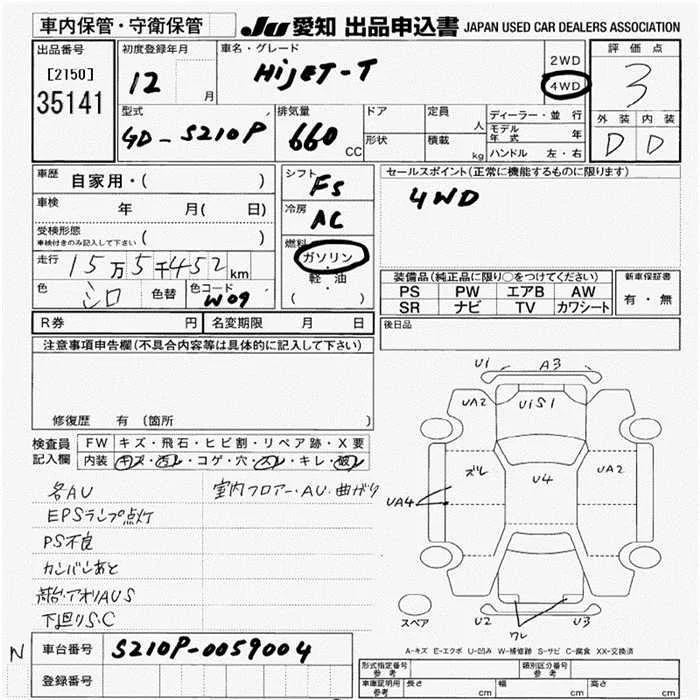 車内保管・守衛保管
JU 愛知 出品申込書 JAPAN USED CAR DEALERS ASSOCIATION
出品番号
[2150]
35141
初度登録年月
12 月
車名・グレード
HiJET-T
2WD
4WD
評価点
3
外装 内装
D D
型式
GD-S210P
排気量
660 CC
ドア
形状
定員 人
積載 kg
ディーラー・並行
モデル年式 年
ハンドル 左・右
車歴 自家用・( )
車検 年 月( 日)
受検形態
車検付きのみ記入して下さい ( )
走行 15万5千452km
色 シロ 色替 色コード W09
シフト F5
冷房 AC
燃料 ガソリン
・
軽・油
( )
セールスポイント(正常に機能するものに限ります)
4WD
装備品(純正品に限り○をつけてください)
PS PW エアB AW
SR ナビ TV カワシート
新車保証書
有・無
R券 円 名変期限 月 日
後日品
注意事項申告欄(不具合内容等は具体的に記入して下さい)
修復歴 有 (箇所 )
検査員記入欄
FW キズ・飛石・ヒビ割・リペア跡・X要
内装 キズ・汚レ・コゲ・穴・スレ・キレ・破レ
各AU 室内フロアー・AU・曲がり
EPSランプ点灯
PS不良
カンバンあと
荷台・アオリAUS
下廻りS.C
U1 A3
UA2 U1S1
ズレ U4 UA2
UA4
スペア U2 ワレ U3
A-キズ E-エクボ U-凹み W-補修跡 S-サビ C-腐食 XX-交換済
N 車台番号 S210P-0059004
登録番号
形式指定番号 参考 類別区分番号 参考
車庫証明用 参考 長さ cm 幅 cm 高さ cm